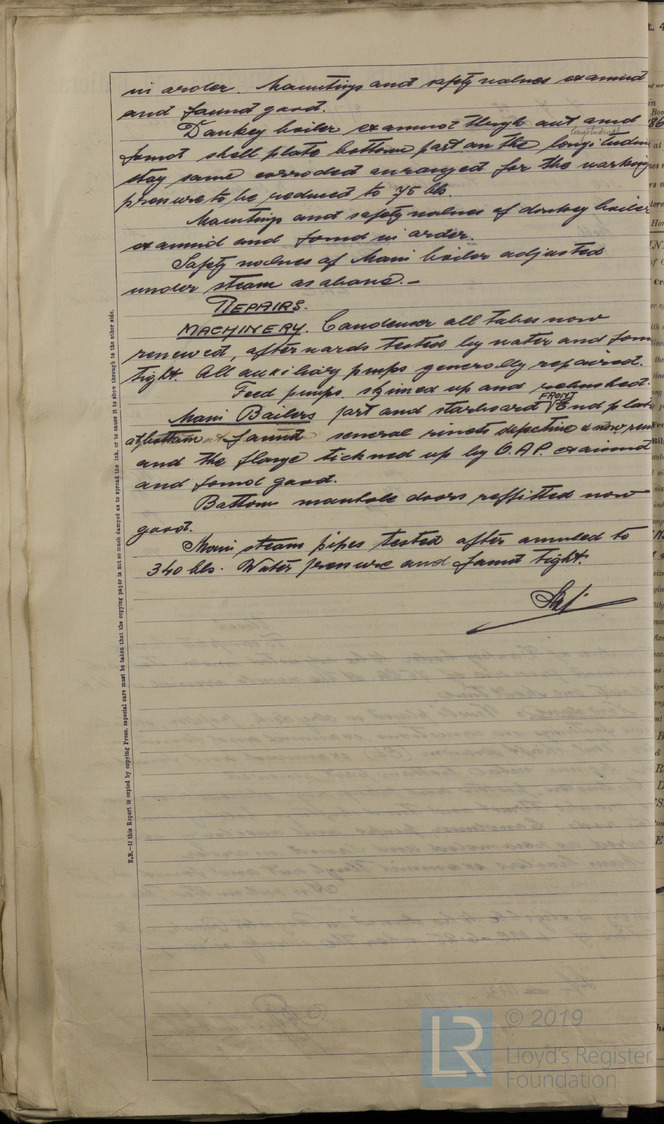 in order. Mountings and safety valves examined
and found good.
Donkey boiler examined through out and
longitudinal
found shell plate bottom part on the longitudin
stay some corroded arranged for the working
pressure to be reduced to 75 lbs.
Mountings and safety valves of donkey boiler
examined and found in order.
Safety valves of Main boiler adjusted
under steam as above.-
REPAIRS.
MACHINERY. Condenser all tubes now
renewed, afterwards tested by water and foun
tight. All auxiliary pumps generally repaired.
Feed pumps skimed up and rebushed.
FRONT
Main Boilers port and starboard End plate
at bottom found several rivets defective & now
and the flange ticned up by O.A.P. examined
and found good.
Bottom manhole doors reffitted now
good.
Main steam pipes tested after annuled to
340 lbs. Water pressure and found tight.
N.B.—If this Report is copied by copying Press, especial care must be taken that the copying paper is not so much damped as to spread the ink, or to cause it to show through to the other side.
LR
© 2019
Lloyd's Register
Foundation